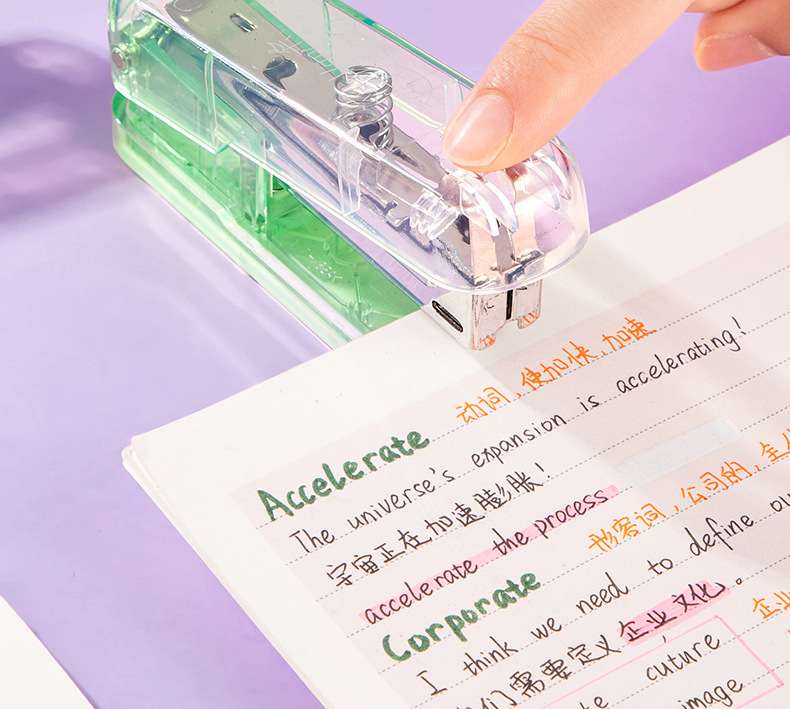 动词，使加快，加速
Accelerate
The universe's expansion is accelerating!
宇宙正在加速膨胀！
accelerate the process
形容词，公司的，
Corporate
I think we need to define
们需要定义企业文化。
企业
cuture
image